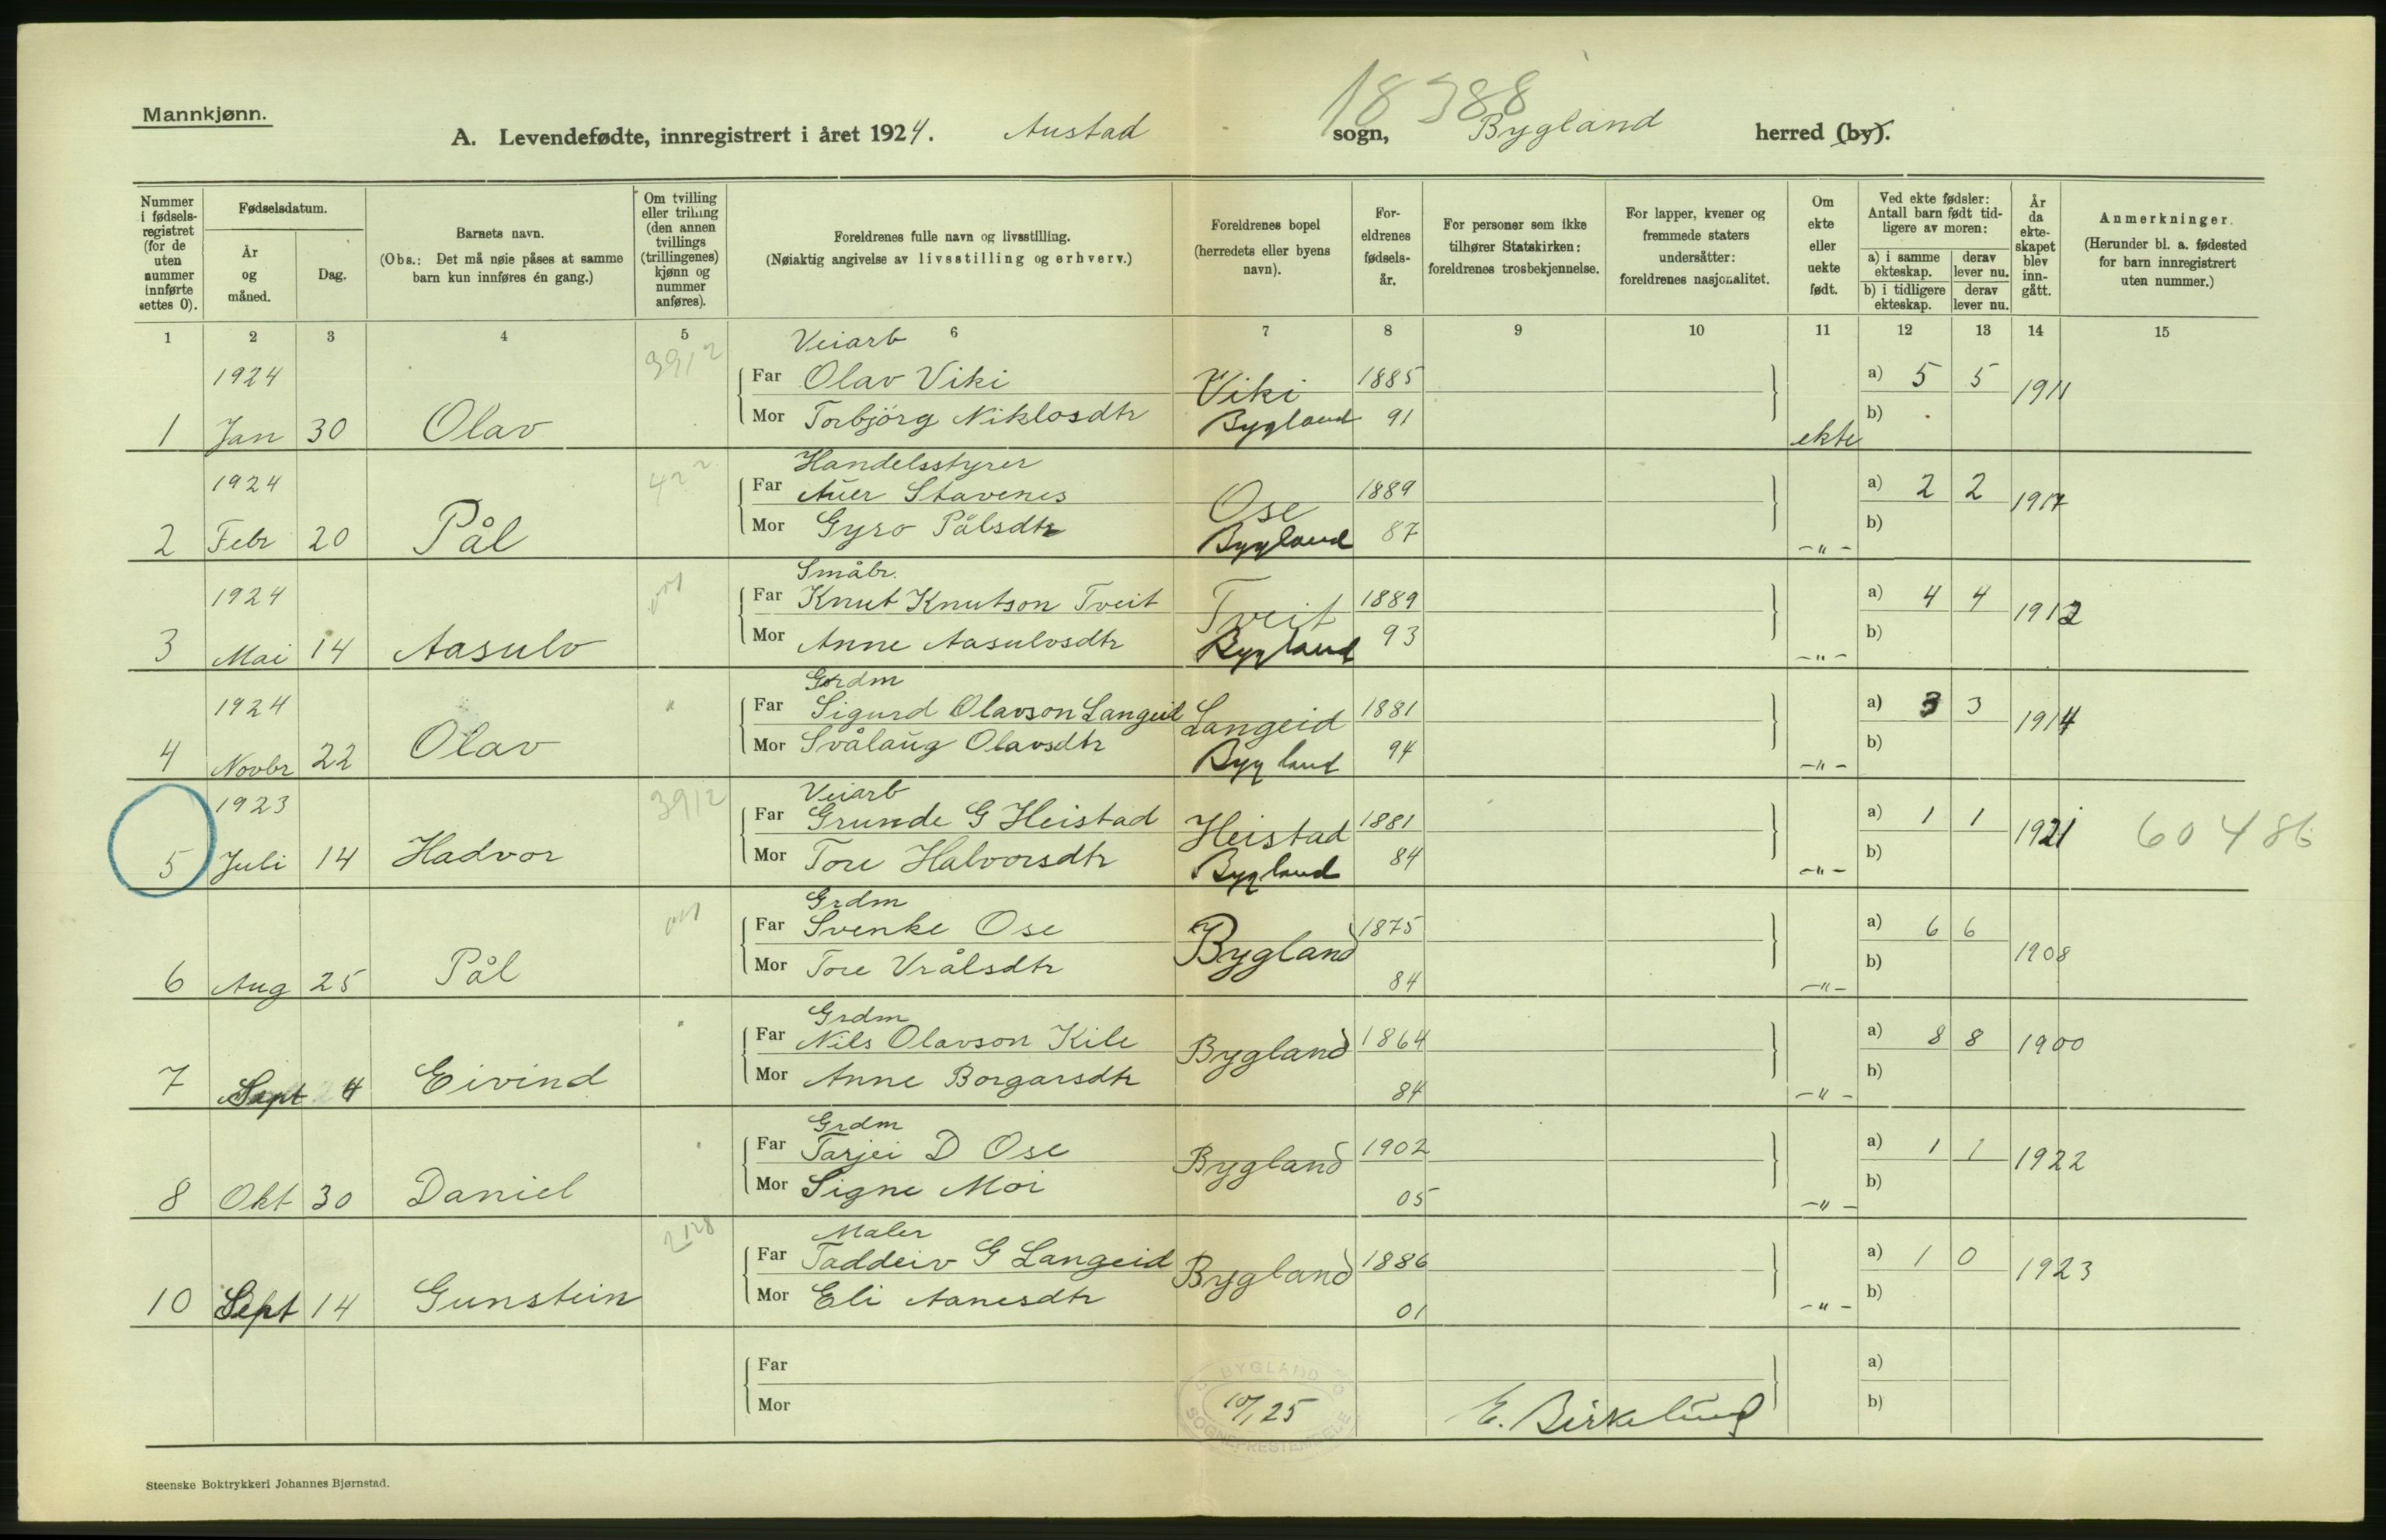 18388
Mannkjønn.
A. Levendefødte, innregistrert i året 1924. Austad sogn, Bygland herred (by).
Nummer i fødsels-registret (for de uten nummer innførte settes 0).
Fødselsdatum.
År og måned.
Dag.
Barnets navn.
(Obs.: Det må nøie påses at samme barn kun innføres én gang.)
Om tvilling eller trilling (den annen tvillings (trillingenes) kjønn og nummer anføres).
Foreldrenes fulle navn og livsstilling.
(Nøiaktig angivelse av livsstilling og erhverv.)
Foreldrenes bopel (herredets eller byens navn).
For-eldrenes fødsels-år.
For personer som ikke tilhører Statskirken: foreldrenes trosbekjennelse.
For lapper, kvener og fremmede staters undersåtter: foreldrenes nasjonalitet.
Om ekte eller uekte født.
Ved ekte fødsler: Antall barn født tid-ligere av moren:
a) i samme ekteskap. derav lever nu.
b) i tidligere ekteskap. derav lever nu.
År da ekte-skapet blev inn-gått.
Anmerkninger.
(Herunder bl. a. fødested for barn innregistrert uten nummer.)
1 2 3 4 5 6 7 8 9 10 11 12 13 14 15
3912 Veiarb
1924 Far Olav Viki Viki 1885 a) 5 5 1911
1 Jan 30 Olav Mor Torbjörg Niklosdtr Bygland 91 ekte b)
422 Handelsstyrer
1924 Far Stavenes Ose 1889 a) 2 2 1917
2 Febr 20 Pål Mor Gyro Pålsdtr Bygland 87 -"- b)
Småbr.
1924 Far Knut Knutson Tveit Tveit 1889 a) 4 4 1912
3 Mai 14 Aasulv Mor Anne Aasulvsdtr Bygland 93 -"- b)
Grdm
1924 " Far Sigurd Olavson Langeid Langeid 1881 a) 3 3 1914
4 Novbr 22 Olav Mor Svålaug Olavsdtr Bygland 94 -"- b)
3912 Veiarb
1923 Far Grunde G Heistad Heistad 1881 a) 1 1 1921 60486
5 Juli 14 Hadvor Mor Tore Halvorsdtr Bygland 84 -"- b)
Grdm
Far Svenke Ose Bygland 1875 a) 6 6 1908
6 Aug 25 Pål Mor Tore Vrålsdtr 84 -"- b)
Grdm
" Far Nils Olavson Kile Bygland 1864 a) 8 8 1900
7 Sept 4 Eivind Mor Anne Borgarsdtr 84 -"- b)
Grdm
Far Tarjei D Ose Bygland 1902 a) 1 1 1922
8 Okt 30 Daniel Mor Signe Moi 05 -"- b)
2128 Maler
Far Taddeiv G Langeid Bygland 1886 a) 1 0 1923
10 Sept 14 Gunstein Mor Eli Aanesdtr 01 -"- b)
Far a)
Mor b)
BYGLAND
10/1 25
SOGNEPRESTEMBEDE
E. Birkelund
Steenske Boktrykkeri Johannes Bjørnstad.